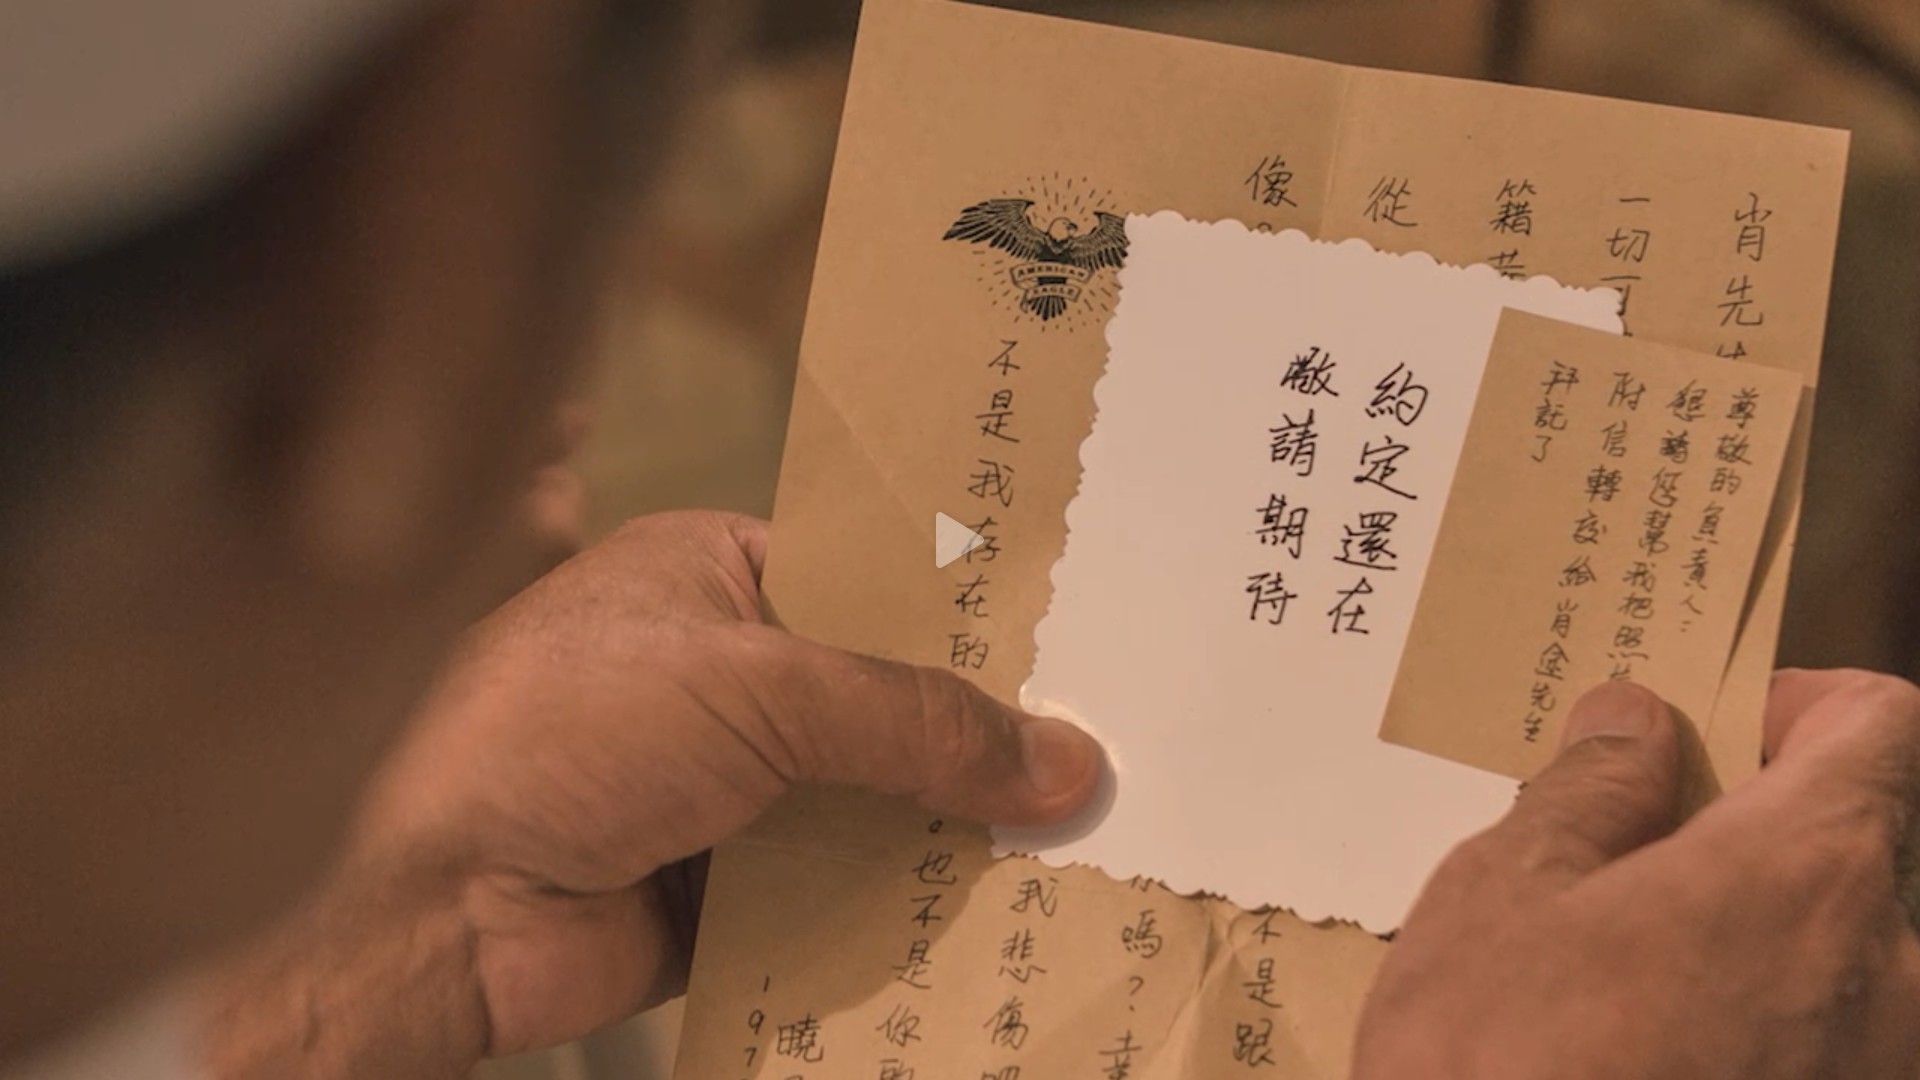 肖先生
一切可
籍
從
像
不是跟
嗎？幸
我悲傷吧
不是我存在的
。也不是你的
曉
197
AMERICAN
EAGLE
約定還在
敬請期待
尊敬的負責人：
懇請您幫我把照片
附信轉交給肖金先生
拜託了